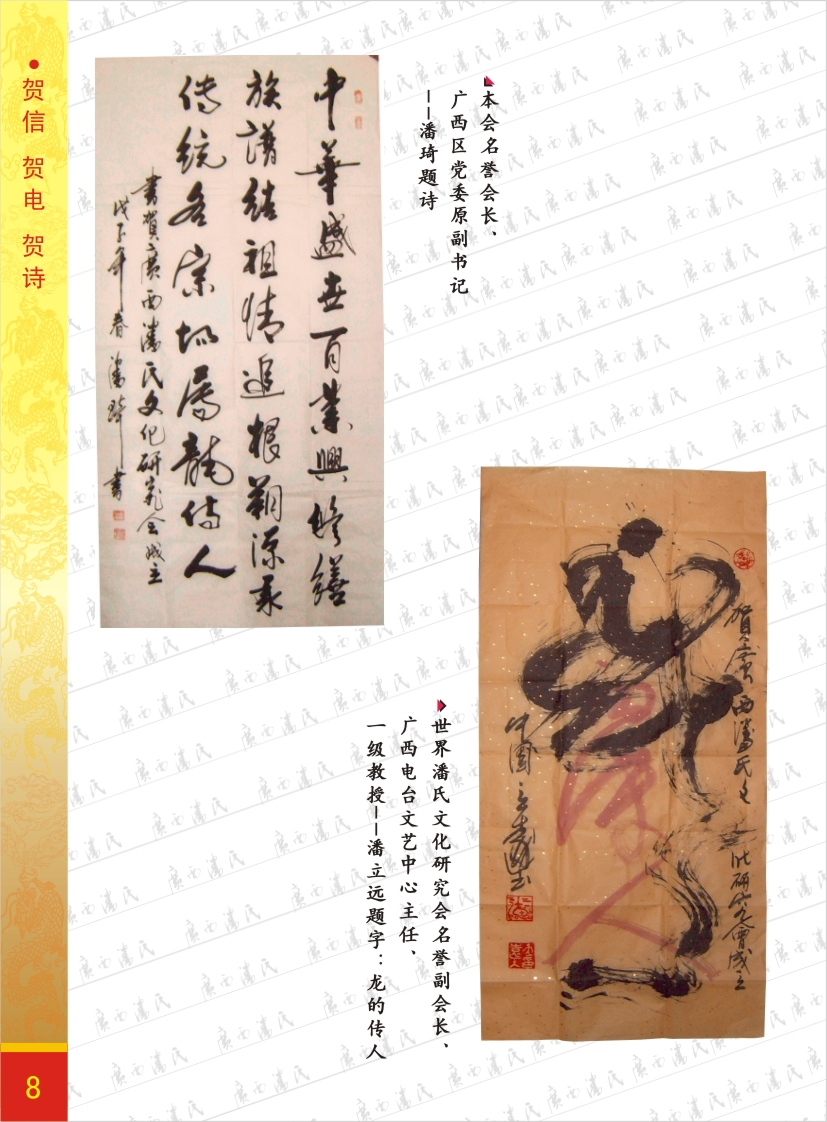 贺信 贺电 贺诗
本会名誉会长、
广西区党委原副书记
——潘琦题诗
中華盛世百業興修繕
族譜結祖情追根溯源承
傳統各宗均属龍傳人
書賀廣西潘氏文化研究会成立
戊子年春潘琦書
賀廣西潘氏文化研究會成立
世界潘氏文化研究会名誉副会长、
广西电台文艺中心主任、
一级教授——潘立远题字：龙的传人
8
廣西潘氏